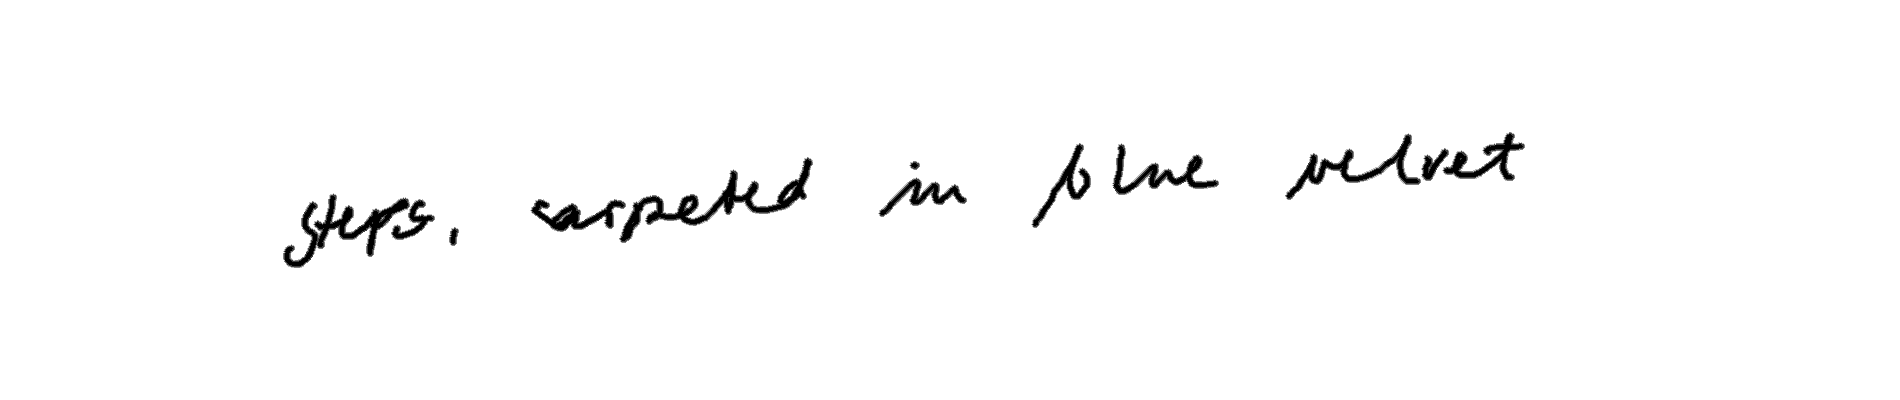 steps, carpeted in blue velvet